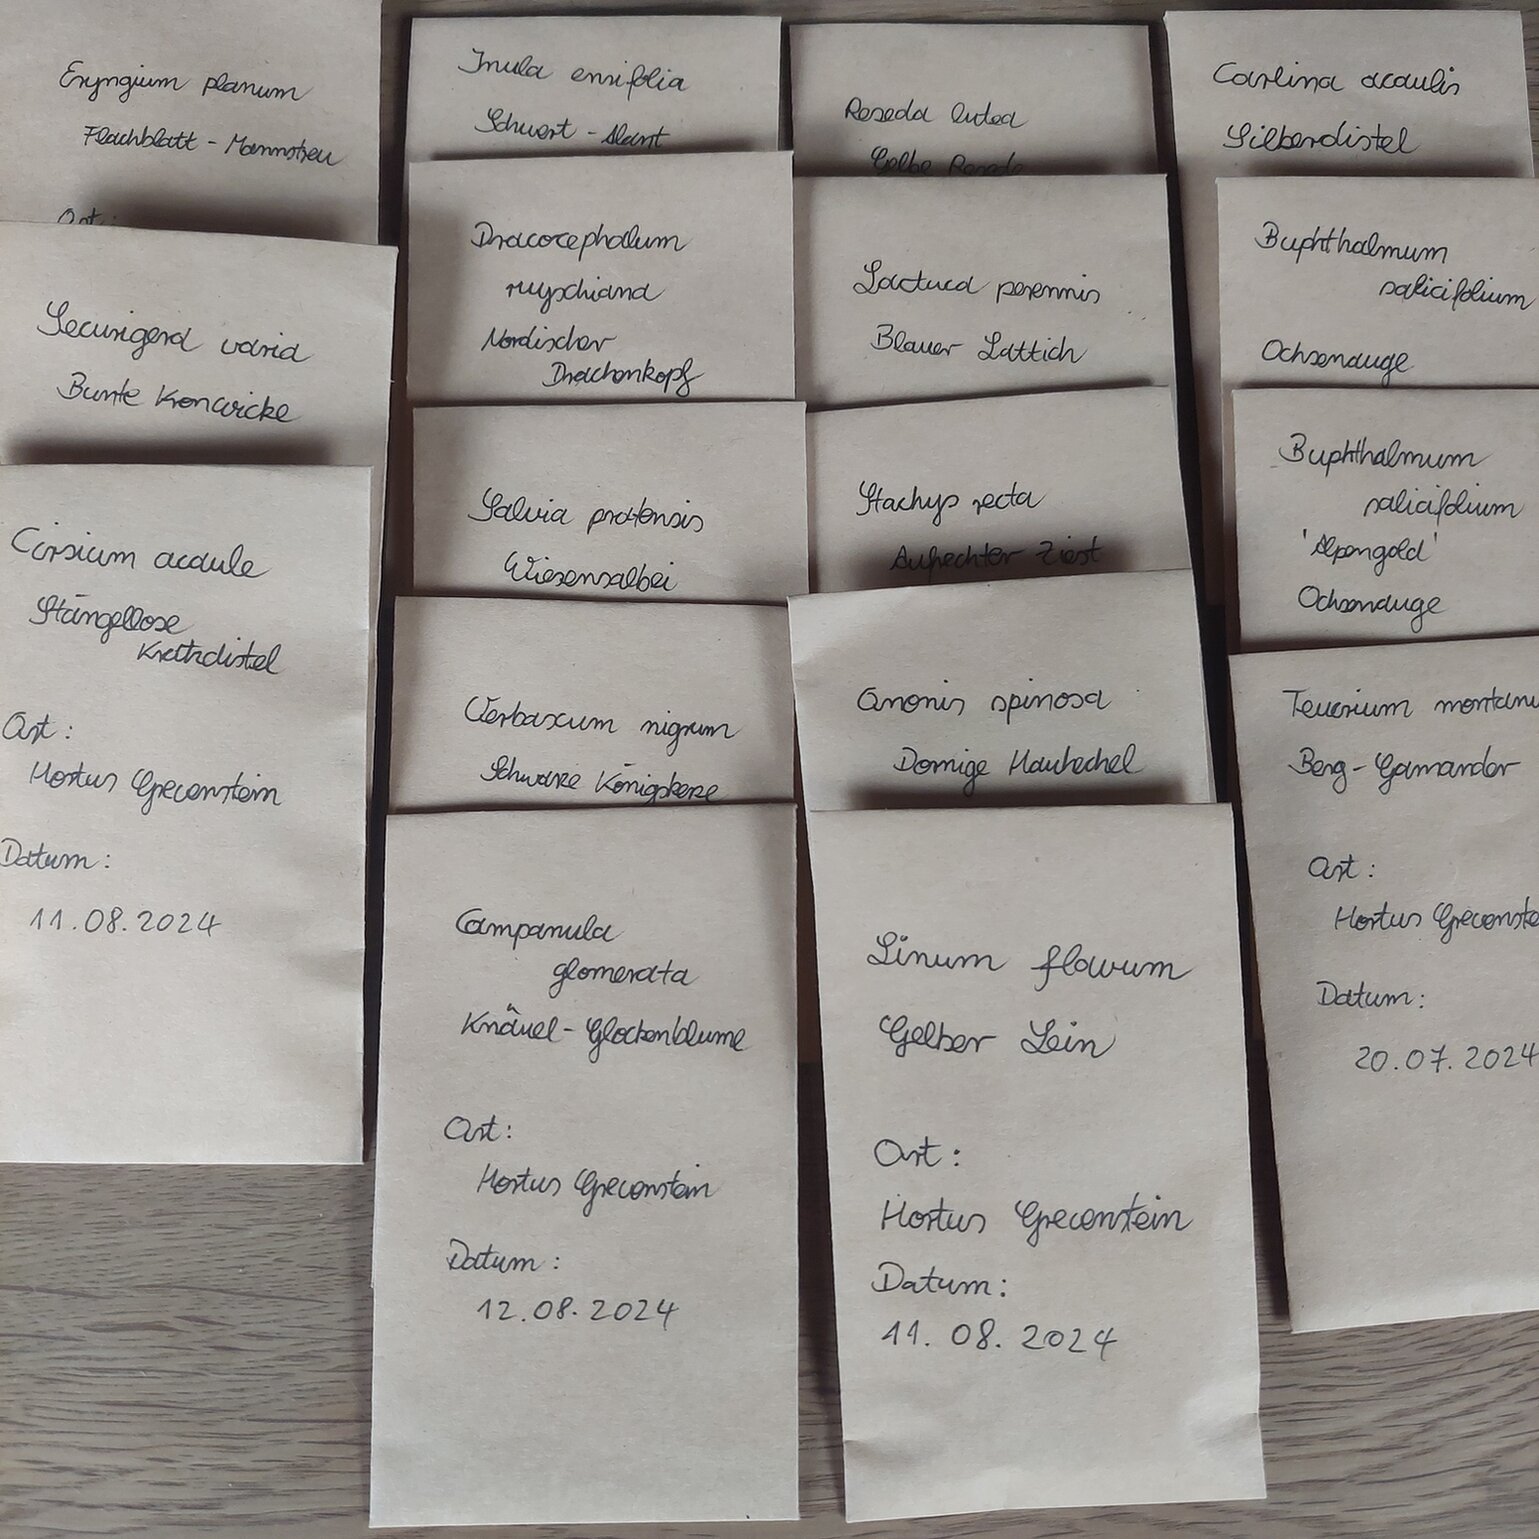 Eryngium planum
Flachblatt - Mannstreu
Ort:
Securigera varia
Bunte Kronwicke
Cirsium acaule
Stängellose
Kratzdistel
Ort:
Hortus Grevenstein
Datum:
11.08.2024
Inula ensifolia
Schwert - Alant
Dracocephalum
ruyschiana
Nordischer
Drachenkopf
Salvia pratensis
Wiesensalbei
Verbascum nigrum
Schwarze Königskerze
Campanula
glomerata
Knäuel-Glockenblume
Ort:
Hortus Grevenstein
Datum:
12.08.2024
Reseda lutea
Gelbe Resede
Lactuca perennis
Blauer Lattich
Stachys recta
Aufrechter Ziest
Ononis spinosa
Dornige Hauhechel
Linum flavum
Gelber Lein
Ort:
Hortus Grevenstein
Datum:
11.08.2024
Carlina acaulis
Silberdistel
Buphthalmum
salicifolium
Ochsenauge
Buphthalmum
salicifolium
'Alpengold'
Ochsenauge
Teucrium montanu
Berg-Gamander
Ort:
Hortus Grevenste
Datum:
20.07.2024